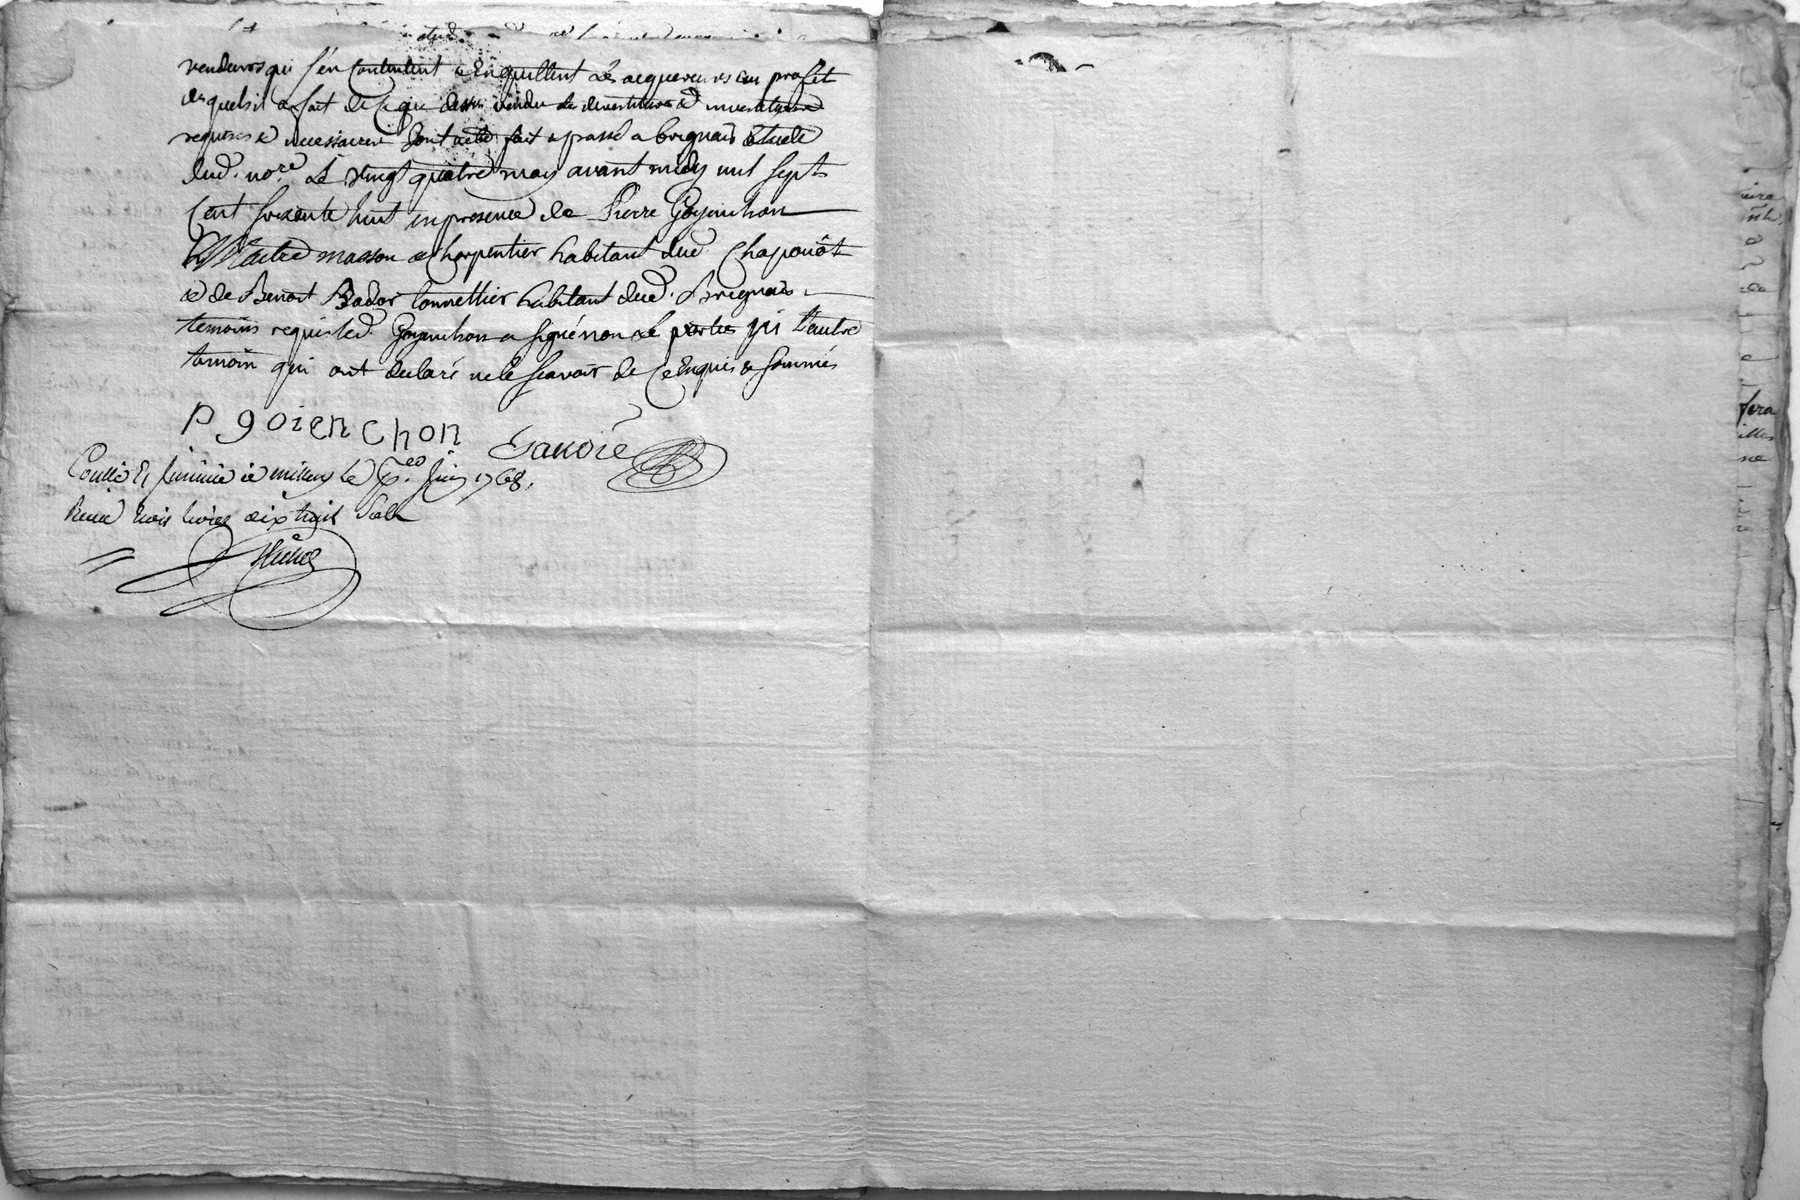 vendeurs qui s'en contentent & En quittent Les acquereurs au profit
desquels il a fait de ce que dessus vendu de devestiture & investiture
requises & necessaires Dont acte fait & passé a brignais Etude
dud. no.re Le vingt quatre may avant midy mil sept
Cent soixante huit en presence de Pierre Goyenchon
Maitre masson & charpentier habitant dud Chaponôst
& de Benoit Bador tonnellier habitant dud. Brignais
temoins requis led. Goyenchon a signé non les parties ny L'autre
temoin qui ont declaré ne le scavoir de ce Enquis & sommés
P goienchon
Gavoié
Controllé à millery le Juin 1768.
Receu trois livres dix huit sols